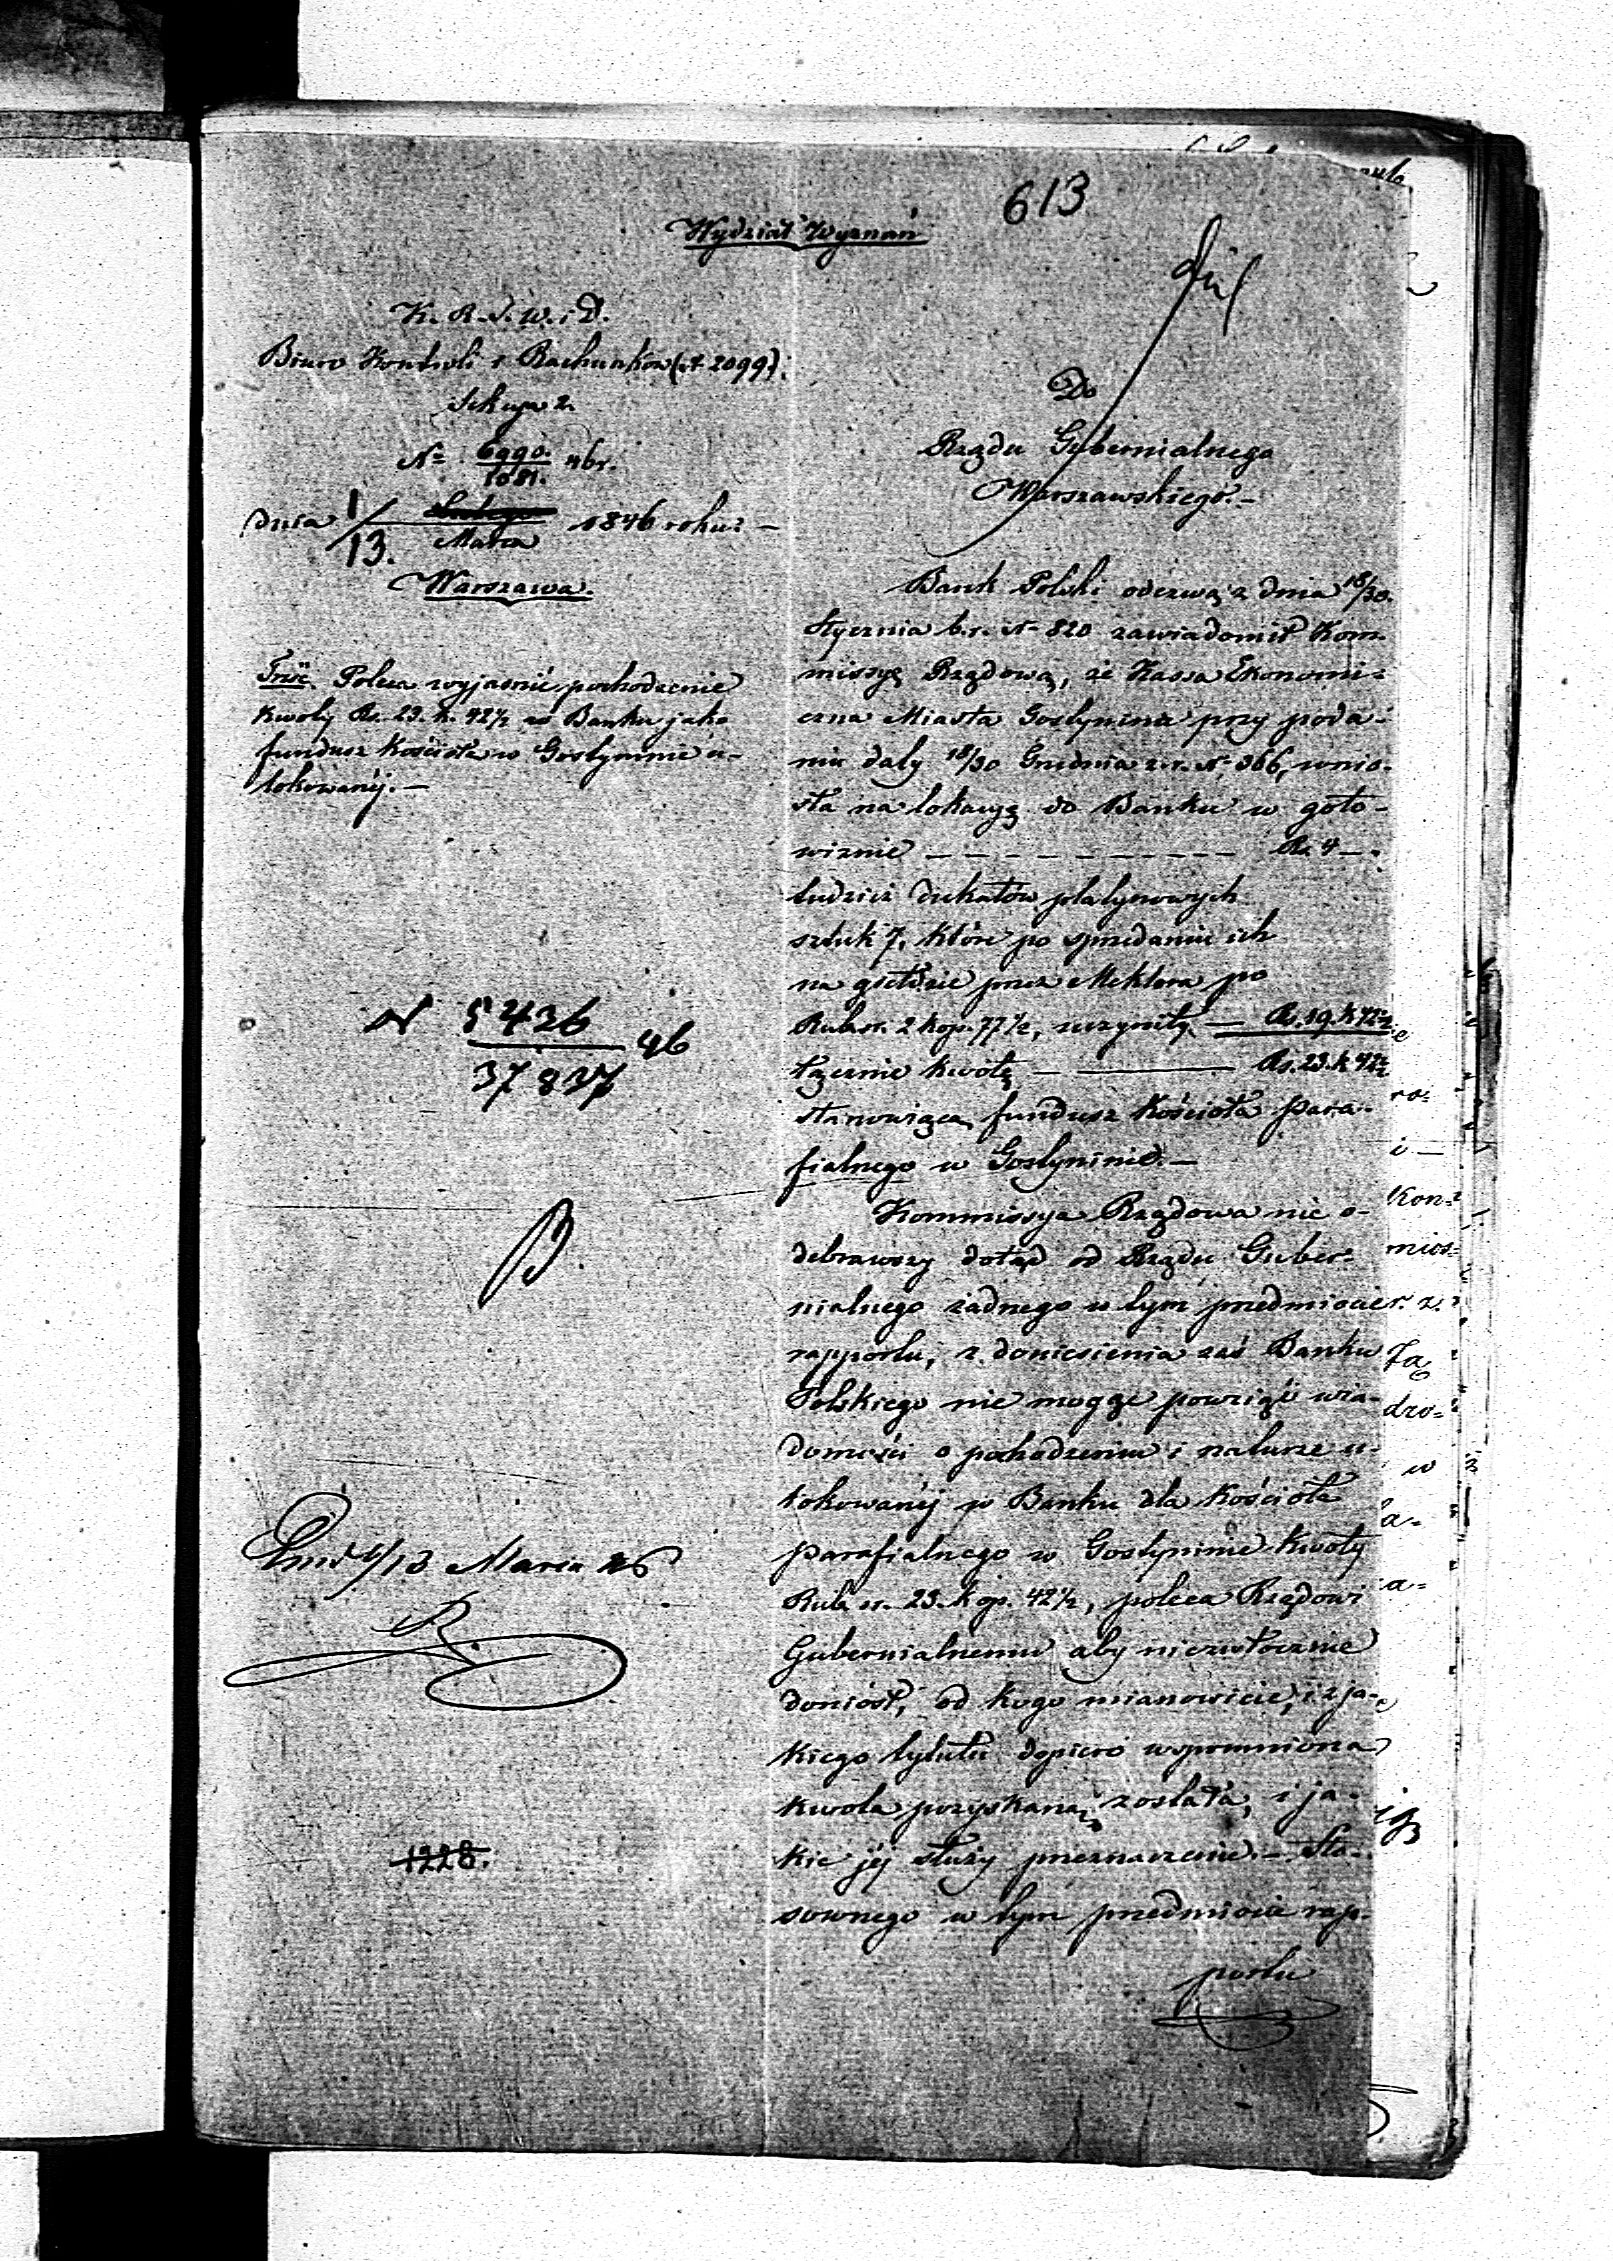 613
Wydział Wyznań
K. R. S. W. i D.
Biuro Kontroli i Rachunków (2099).
Sekcya 2.
No 6990. 46 r.
1081.
dnia 1/13. Lutego Marca 1846 roku. —
Warszawa.
Treść. Poleca wyjaśnić pochodzenie
kwoty Rs. 23. k. 42½ w Banku jako
fundusz Kościoła w Gostyninie u-
lokowanéj. —
N 5426 46
37837
1/13 Marca 46
1228.
Do
Rządu Gubernialnego
Warszawskiego. —
Bank Polski odezwą z dnia 18/30.
Stycznia b. r. No 820 zawiadomił Kom-
missyę Rządową, że Kassa Ekonomi-
czna Miasta Gostynina przy poda-
niu daty 18/30 Grudnia z. r. No 366, wnio-
sła na lokacyę do Banku w goto-
wiznie — — — — — — — — — Rs. 4 —.
tudzież dukatów platynowych
sztuk 7, które po sprzedaniu ich
na giełdzie przez Meklera po
Rub. sr. 2 kop. 77½, uczyniły — Rs. 19. k 42½
łącznie kwotę — Rs. 23. k 42½
stanowiącą fundusz Kościoła para-
fialnego w Gostyninie. —
Kommissya Rządowa nie o-
debrawszy dotąd od Rządu Guber-
nialnego żadnego w tym przedmiocie
rapportu, z doniesienia zaś Banku
Polskiego nie mogąc powziąć wia-
domości o pochodzeniu i naturze u-
lokowanéj w Banku dla Kościoła
parafialnego w Gostyninie kwoty
Rub. sr. 23. kop. 42½, poleca Rządowi
Gubernialnemu aby niezwłocznie
doniósł, od kogo mianowicie, i z ja-
kiego tytułu dopiero wspomniona
kwota pozyskaną została, i ja-
kie jéj służy przeznaczenie. — Sto-
sownego w tym przedmiocie rap-
portu